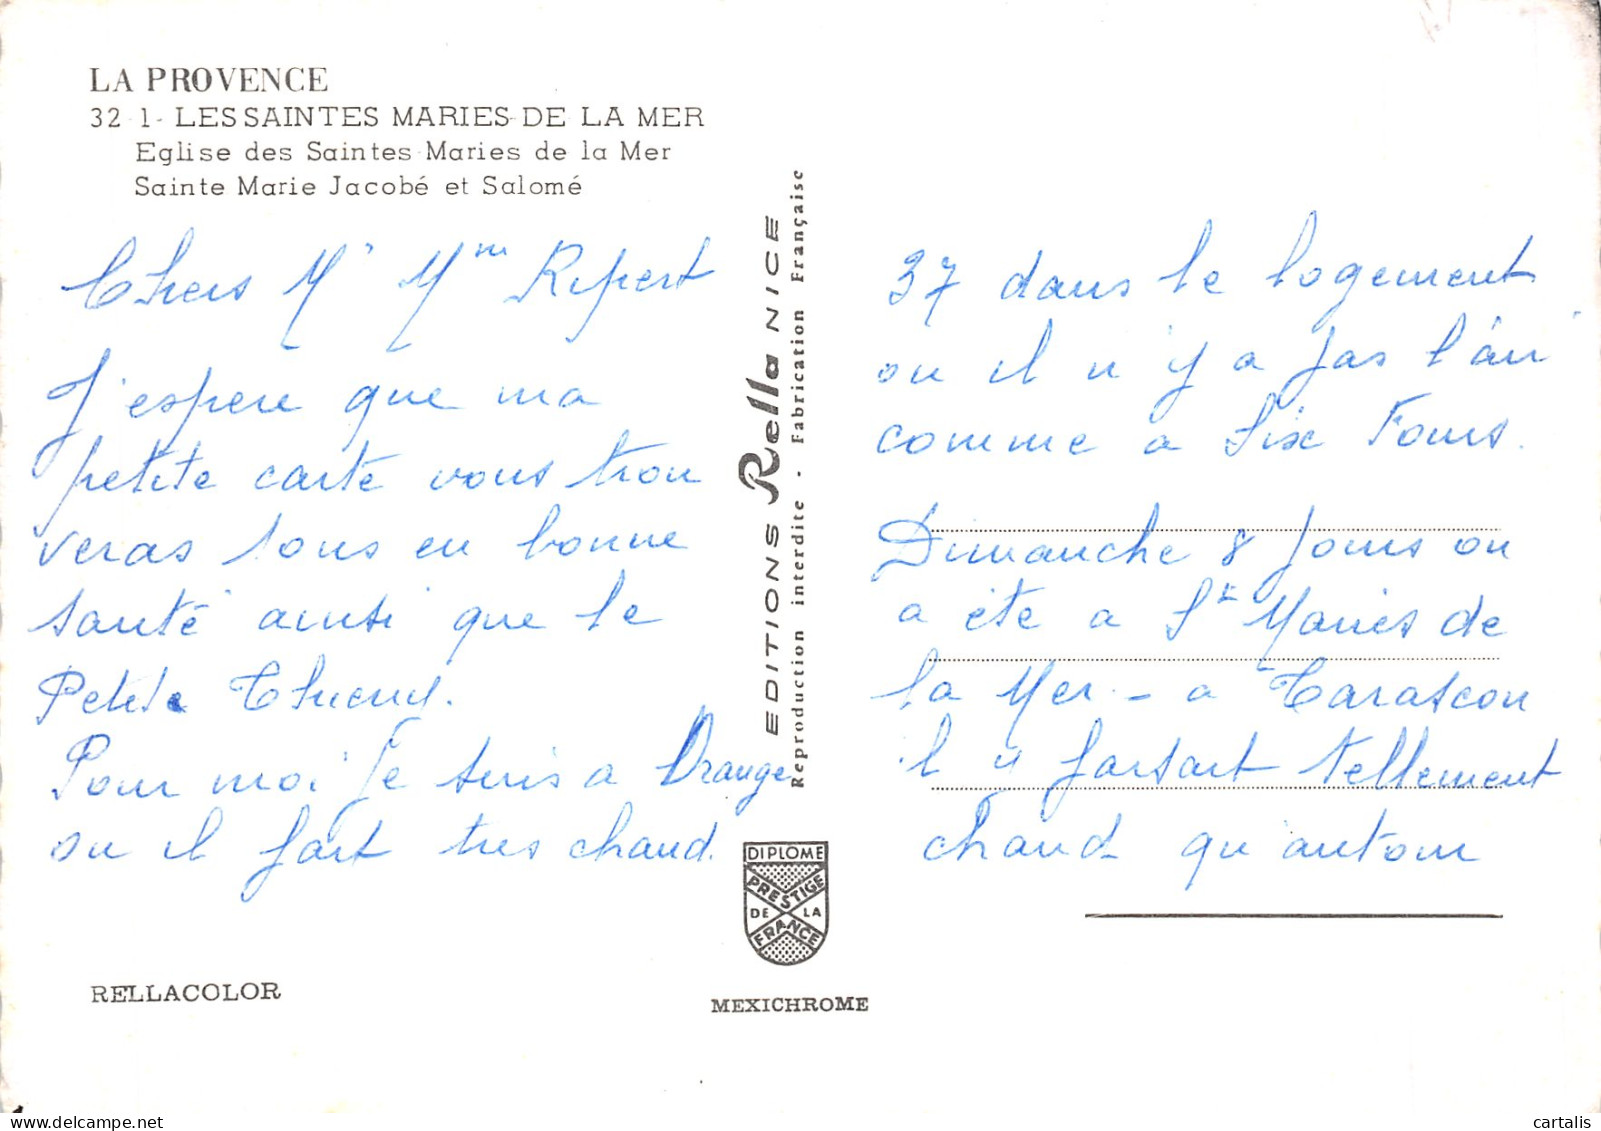 LA PROVENCE
32-1- LES SAINTES MARIES-DE LA MER
Eglise des Saintes Maries de la Mer
Sainte Marie Jacobé et Salomé
Chers Mr Mme Ripert
J'espere que ma
petite carte vous trou
veras tous en bonne
santé ainsi que le
Petite Thierry.
Pour moi Je suis a Orange
ou il fait tres chaud.
EDITIONS Rella NICE
Reproduction interdite - Fabrication Française
DIPLOME
PRESTIGE
DE LA
FRANCE
37 dans le logement
ou il n'y a pas l'air
comme a Six Fours.
Dimanche 8 Jours on
a été a Ste Maries de
la Mer - a Tarascon
il y faisait tellement
chaud qu'autour
RELLACOLOR
MEXICHROME
cartalis
www.delcampe.net